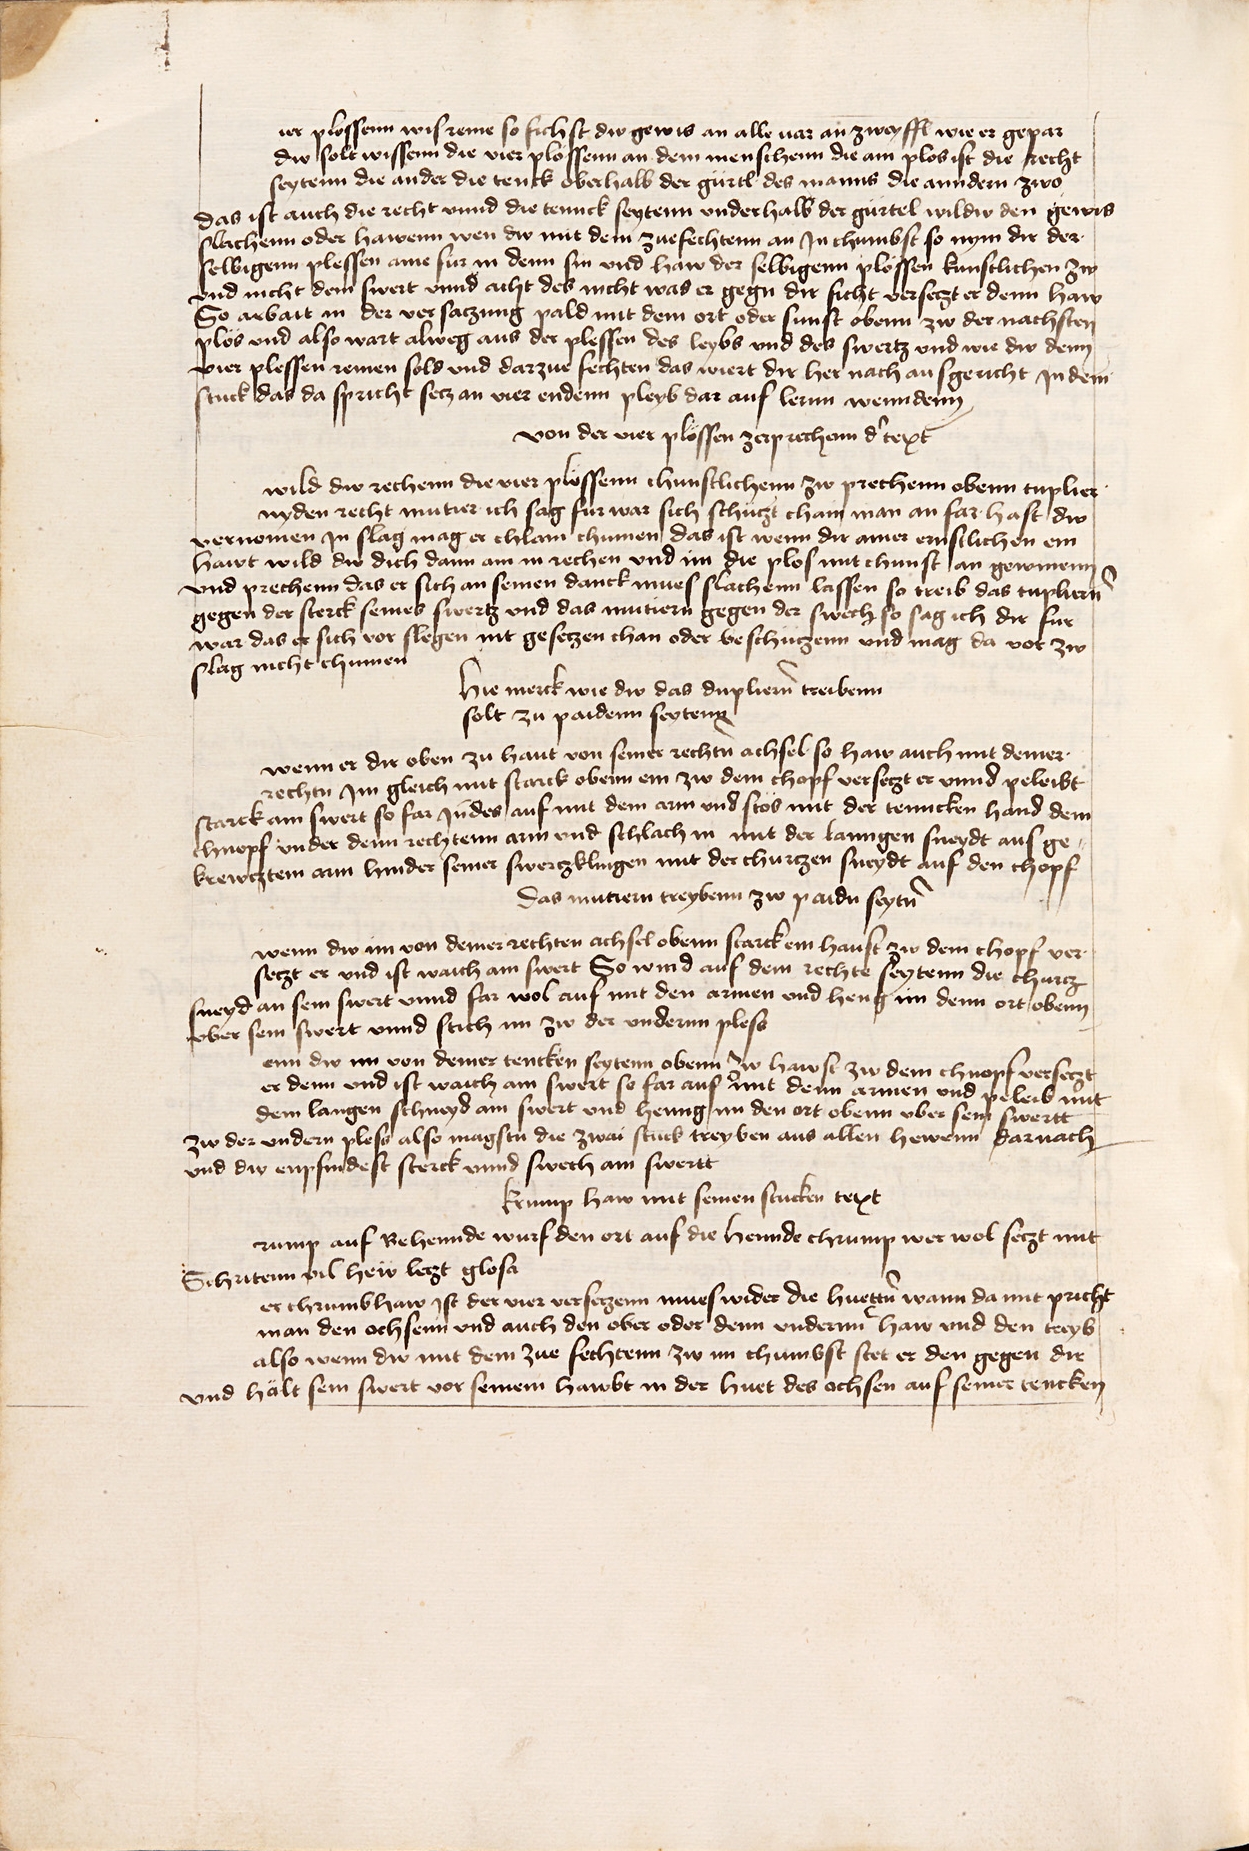 ier plössenn wis reme so fichst dw gewis an alle uar an zweyffl wie er gepar
dw solt wissenn die vier plössenn an dem menschenn die am plos ist die recht
seytenn die ander die tenck oberhalb der gürtl des manns die anndern zwo
das ist auch die recht vnnd die tennck seytenn vnderhalb der gürtel wildw den gewis
slachenn oder hawenn wen dw mit dem zuefechtenn an Jn chumbst so nym dir der
selbigenn plessen aine für in denn sin vnd haw der selbigenn plössen kunstlichen zw
vnd nicht dem swert vnnd acht des nicht was er gegn dir ficht versetzt er denn haw
So arbait in der versaczung pald mit dem ort oder sunst obenn zw der nachsten
plös vnd also wart alweg aus der plessen des leybs vnd des swertz vnd wie dw denn
vier plessen remen sold vnd darzue fechten das wiert dir her nach aus gericht Jn dem
stuck das da spricht secz an vier endenn pleyb dar auf lernn wenndenn
von der vier plössen zerprechenn d' text
wild dw rechenn die vier plössenn chunstlichenn zw prechenn obenn tuplier
nyden recht mutier ich sag für war sich schüczt chain man an far hast dw
vernomen Jn slag mag er chlain chumen das ist wenn dir ainer ernstlichen ein
hawt wild dw dich dann am in rechen vnd im die plos mit chunst an gewinenn
vnd prechenn das er sich an seinen danck mues slachenn lassen so treib das tupliern
gegen der sterck seines swertz vnd das mutiern gegen der swech so sag ich dir für
war das er sich vor slegen nit geseczen chan oder beschüczenn vnd mag da vor zw
slag nicht chumen
hie merck wie dw das duplierñ treibenn
solt zu paidenn seytenn
wenn er dir oben zu haut von seiner rechtñ achsel so haw auch mit deiner
rechtn Jm gleich mit starck obenn ein zw dem chopf versetzt er vnnd peleibt
starck am swert so far Jndes auf mit dem arm vnd stös mit der tenncken hand dem
chnopf vnder denn rechtenn arm vnd schlach in mit der lanngen sneydt aus ge
krewcztem arm hinder seiner swerczklingen mit der churczen sneydt auf den chopf
das mutiern treybenn zw paidn seytñ
wenn dw im von deiner rechten achsel obenn starck ein haust zw dem chopf ver
seczt er vnd ist waich am swert So wind auf dem rechte seytenn die churcz
sneyd an sein swert vnnd far wol auf mit den armen vnd heng im denn ort obenn
vber sein swert vnnd stich im zw der vnderñ pless
enn dw im von deiner tencken seytenn obenn zw hawst zw dem chnopf verseczt
er denn vnd ist waich am swert so far auf mit denn armen vnd peleib mit
dem langen schneyd am swert vnd henng im den ort obenn vber sein swertt
zw der vndern pless also magstu die zwai stuck treyben aus allen hewenn darnach
vnd dw enpfindest sterck vnnd swech am swertt
krump haw mit seinen stucken text
rump auf Behennde wurf den ort auf die hennde chrump wer wol seczt mit
Schritenn vil hew leczt glosa
er chrumbhaw Jst der vier verseczenn mues wider die huettñ wann da mit pricht
man den ochsenn vnd auch den ober oder denn vnderñ haw vnd den treyb
also wenn dw mit dem zue fechtenn zw im chumbst stet er den gegen dir
vnd hält sein swert vor seinem hawbt in der huet des ochsen auf seiner tencken